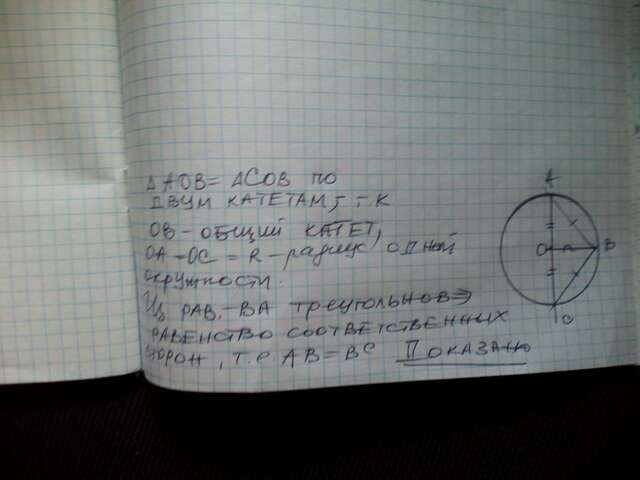 Δ AOB = Δ COB ПО
ДВУМ КАТЕТАМ, Т.К
OB - ОБЩИЙ КАТЕТ,
OA - OC = R - радиус одной
окружности.
Из РАВ.-ВА треугольнов ⇒
РАВЕНСТВО СООТВЕТСТВЕННЫХ
сторон, т.е AB = BC Показано
A
O
B
C